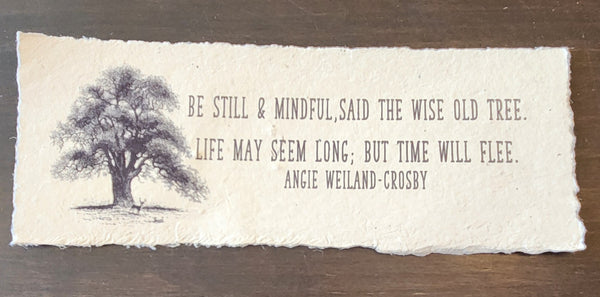 BE STILL & MINDFUL,SAID THE WISE OLD TREE.
LIFE MAY SEEM LONG; BUT TIME WILL FLEE.
ANGIE WEILAND-CROSBY